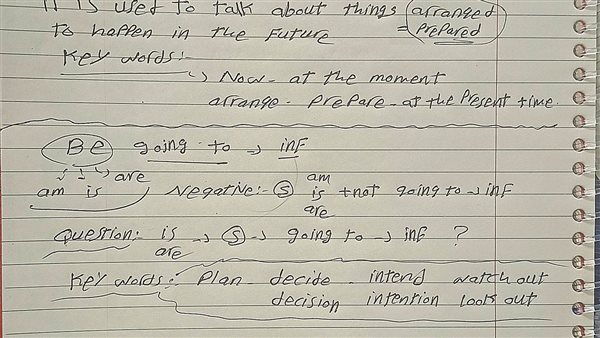 It is used to talk about things arranged
to happen in the Future = Prepared
Key words:-
Now - at the moment
arrange - Prepare - at the Present time.
Be going to → inf
am is are
Negative:- S am is are +not going to → inf
Question:- is are → S → going to → inf ?
Key words:- Plan - decide - intend watch out
decision intention look out